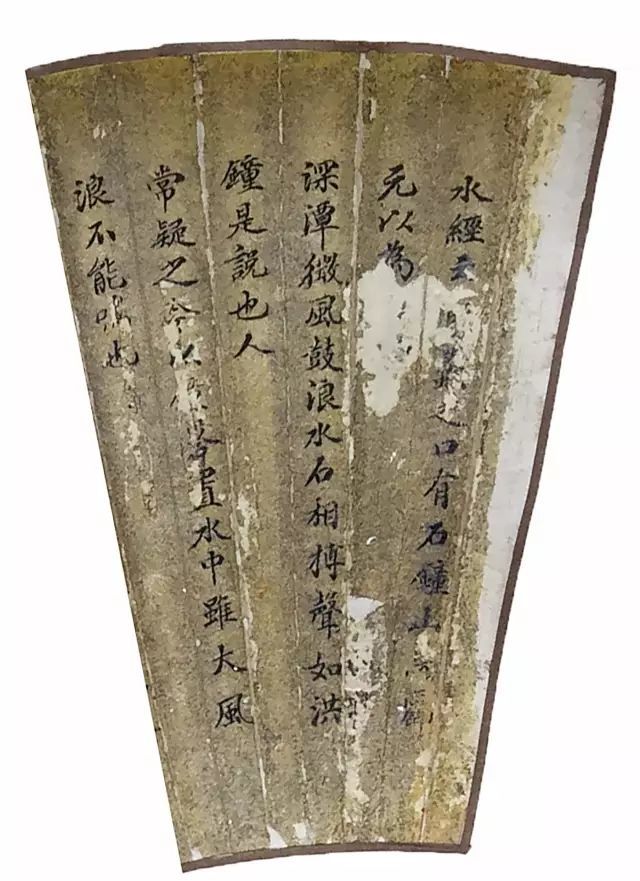 水經云之口有石鐘山
元以為
深潭微風鼓浪水石相搏聲如洪
鐘是說也人
常疑之今以置水中雖大風
浪不能鳴也